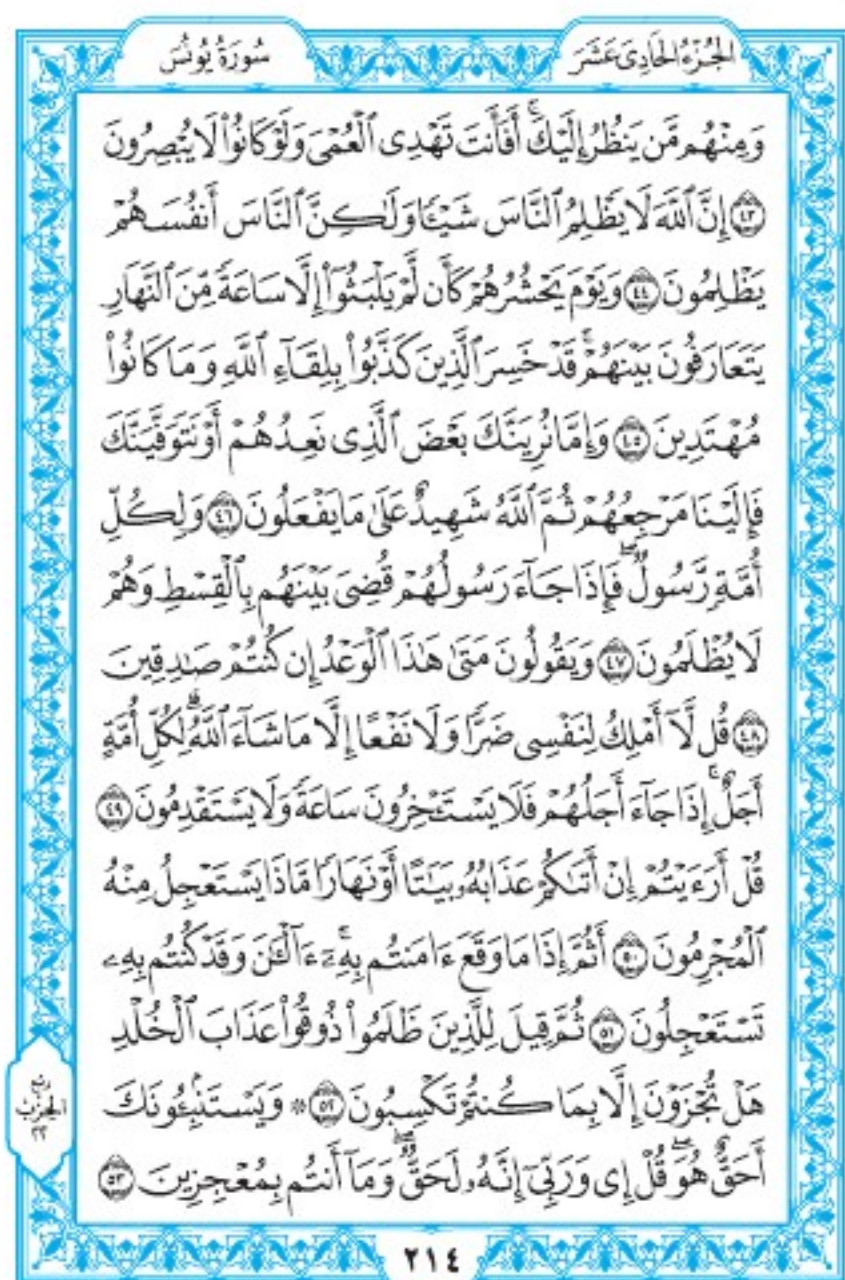 الجُزْءُ الحَادِىَ عَشَرَ
سُورَةُ يُونُسَ
وَمِنْهُم مَّن يَنظُرُ إِلَيْكَ ۚ أَفَأَنتَ تَهْدِى ٱلْعُمْىَ وَلَوْ كَانُوا۟ لَا يُبْصِرُونَ
﴿٤٣﴾ إِنَّ ٱللَّهَ لَا يَظْلِمُ ٱلنَّاسَ شَيْـًٔا وَلَـٰكِنَّ ٱلنَّاسَ أَنفُسَهُمْ
يَظْلِمُونَ ﴿٤٤﴾ وَيَوْمَ يَحْشُرُهُمْ كَأَن لَّمْ يَلْبَثُوٓا۟ إِلَّا سَاعَةً مِّنَ ٱلنَّهَارِ
يَتَعَارَفُونَ بَيْنَهُمْ ۚ قَدْ خَسِرَ ٱلَّذِينَ كَذَّبُوا۟ بِلِقَآءِ ٱللَّهِ وَمَا كَانُوا۟
مُهْتَدِينَ ﴿٤٥﴾ وَإِمَّا نُرِيَنَّكَ بَعْضَ ٱلَّذِى نَعِدُهُمْ أَوْ نَتَوَفَّيَنَّكَ
فَإِلَيْنَا مَرْجِعُهُمْ ثُمَّ ٱللَّهُ شَهِيدٌ عَلَىٰ مَا يَفْعَلُونَ ﴿٤٦﴾ وَلِكُلِّ
أُمَّةٍ رَّسُولٌ ۖ فَإِذَا جَآءَ رَسُولُهُمْ قُضِىَ بَيْنَهُم بِٱلْقِسْطِ وَهُمْ
لَا يُظْلَمُونَ ﴿٤٧﴾ وَيَقُولُونَ مَتَىٰ هَـٰذَا ٱلْوَعْدُ إِن كُنتُمْ صَـٰدِقِينَ
﴿٤٨﴾ قُل لَّآ أَمْلِكُ لِنَفْسِى ضَرًّا وَلَا نَفْعًا إِلَّا مَا شَآءَ ٱللَّهُ ۗ لِكُلِّ أُمَّةٍ
أَجَلٌ ۚ إِذَا جَآءَ أَجَلُهُمْ فَلَا يَسْتَـْٔخِرُونَ سَاعَةً ۖ وَلَا يَسْتَقْدِمُونَ ﴿٤٩﴾
قُلْ أَرَءَيْتُمْ إِنْ أَتَىٰكُمْ عَذَابُهُۥ بَيَـٰتًا أَوْ نَهَارًا مَّاذَا يَسْتَعْجِلُ مِنْهُ
ٱلْمُجْرِمُونَ ﴿٥٠﴾ أَثُمَّ إِذَا مَا وَقَعَ ءَامَنتُم بِهِۦٓ ۚ ءَآلْـَٔـٰنَ وَقَدْ كُنتُم بِهِۦ
تَسْتَعْجِلُونَ ﴿٥١﴾ ثُمَّ قِيلَ لِلَّذِينَ ظَلَمُوا۟ ذُوقُوا۟ عَذَابَ ٱلْخُلْدِ
هَلْ تُجْزَوْنَ إِلَّا بِمَا كُنتُمْ تَكْسِبُونَ ﴿٥٢﴾ * وَيَسْتَنۢبِـُٔونَكَ
أَحَقٌّ هُوَ ۖ قُلْ إِى وَرَبِّىٓ إِنَّهُۥ لَحَقٌّ ۖ وَمَآ أَنتُم بِمُعْجِزِينَ ﴿٥٣﴾
ربع
الحزب
٢٢
٢١٤